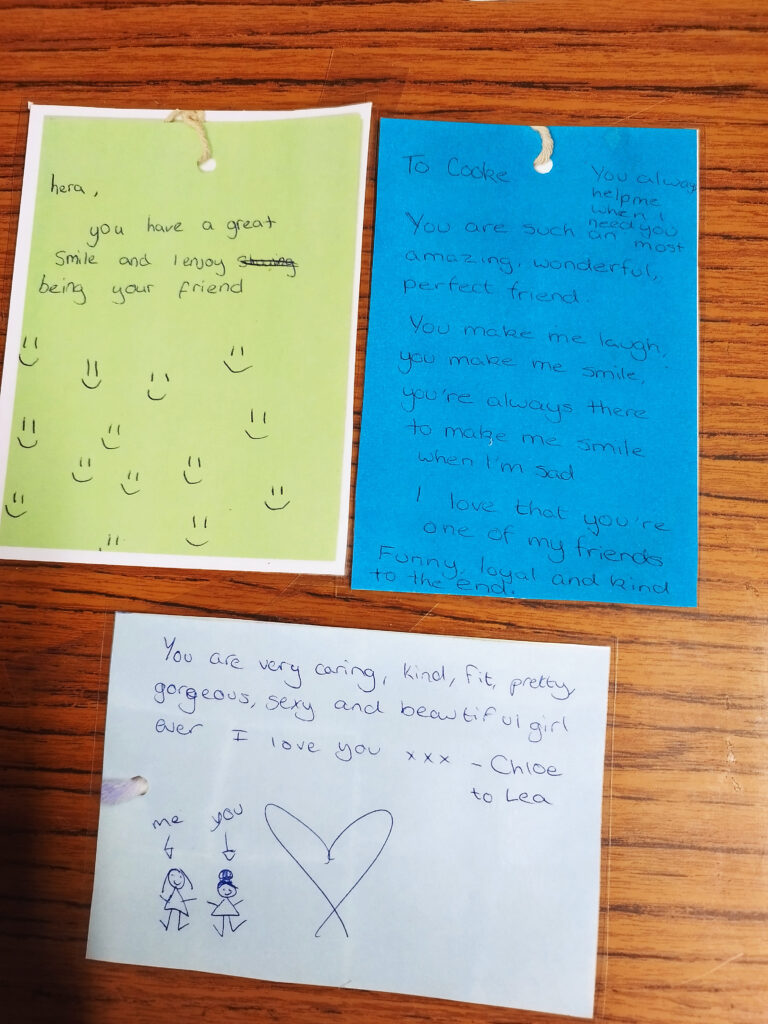 hera,
you have a great
smile and I enjoy
being your friend
To Cooke
You always
help me
when I
need you
most
You are such an
amazing, wonderful,
perfect friend.
You make me laugh,
you make me smile,
you're always there
to make me smile
when I'm sad
I love that you're
one of my friends
Funny, loyal and kind
to the end.
You are very caring, kind, fit, pretty,
gorgeous, sexy and beawtiful girl
ever I love you xxx - Chloe
to Lea
me you